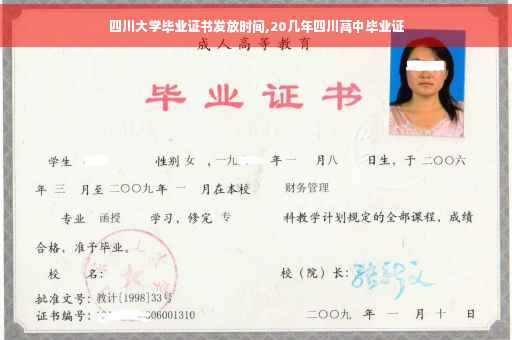 四川大学毕业证书发放时间,20几年四川高中毕业证
成人高等教育
毕业证书
学生 性别 女 ，一九 年 一 月 八 日生，于 二〇〇六
年 三 月至 二〇〇九 年 一 月在本校 财务管理
专业 函授 学习，修完 专 科教学计划规定的全部课程，成绩
合格，准予毕业。
校 名： 校（院）长：
批准文号：教计[1998]33号
证书编号： 06001310 二〇〇九 年 一 月 十 日